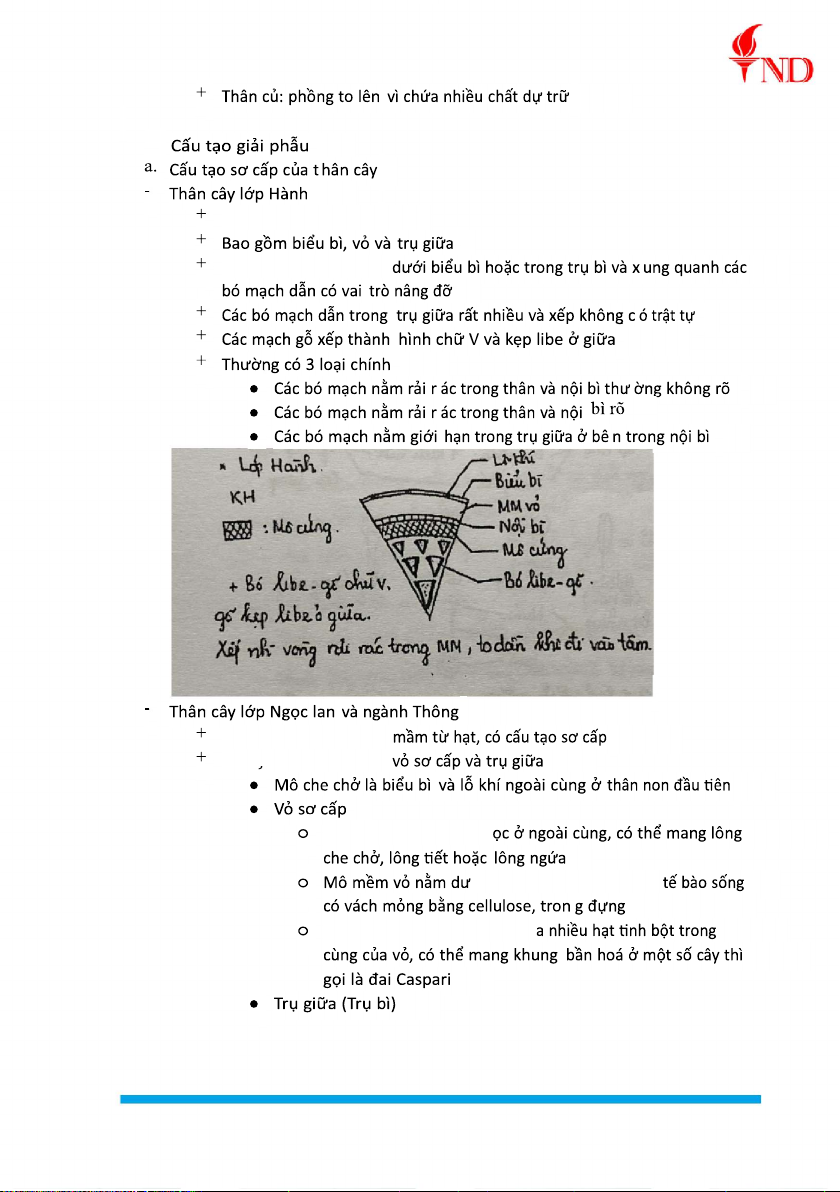 ND
+ Thân củ: phồng to lên vì chứa nhiều chất dự trữ
Cấu tạo giải phẫu
a. Cấu tạo sơ cấp của thân cây
- Thân cây lớp Hành
+
+ Bao gồm biểu bì, vỏ và trụ giữa
+ dưới biểu bì hoặc trong trụ bì và xung quanh các
bó mạch dẫn có vai trò nâng đỡ
+ Các bó mạch dẫn trong trụ giữa rất nhiều và xếp không có trật tự
+ Các mạch gỗ xếp thành hình chữ V và kẹp libe ở giữa
+ Thường có 3 loại chính
● Các bó mạch nằm rải rác trong thân và nội bì thường không rõ
● Các bó mạch nằm rải rác trong thân và nội bì rõ
● Các bó mạch nằm giới hạn trong trụ giữa ở bên trong nội bì
* Lớp Hành.
KH
: Mô cứng.
+ Bó libe-gỗ chữ V.
gỗ kẹp libe ở giữa.
Xếp nh vòng rải rác trong MM, to dần khi đi vào tâm.
Lỗ khí
Biểu bì
MM vỏ
Nội bì
Mô cứng
Bó libe-gỗ.
- Thân cây lớp Ngọc lan và ngành Thông
+ mầm từ hạt, có cấu tạo sơ cấp
+ vỏ sơ cấp và trụ giữa
● Mô che chở là biểu bì và lỗ khí ngoài cùng ở thân non đầu tiên
● Vỏ sơ cấp
o ọc ở ngoài cùng, có thể mang lông
che chở, lông tiết hoặc lông ngứa
o Mô mềm vỏ nằm dư tế bào sống
có vách mỏng bằng cellulose, trong đựng
o a nhiều hạt tinh bột trong
cùng của vỏ, có thể mang khung bần hoá ở một số cây thì
gọi là đai Caspari
● Trụ giữa (Trụ bì)